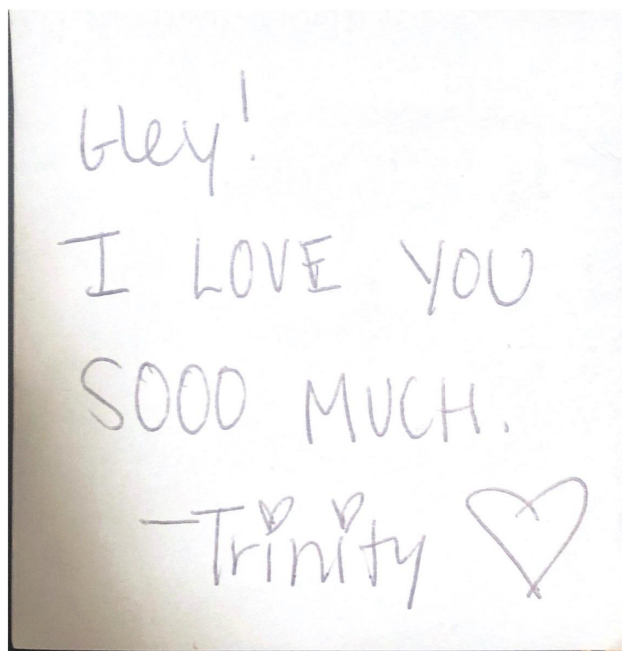 Hey!
I LOVE YOU
SOOO MUCH.
-Trinity ♡